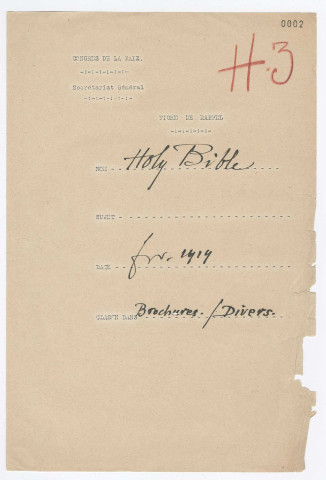 0002
CONGRES DE LA PAIX.
-:-:-:-:-:-
Secrétariat Général
-:-:-:-:-:-
H.3
FICHE DE RAPPEL
-:-:-:-:-:-
NOM -- Holy Bible
OBJET
DATE -- fév. 1919
CLASSÉ DANS Brochures. / Divers.